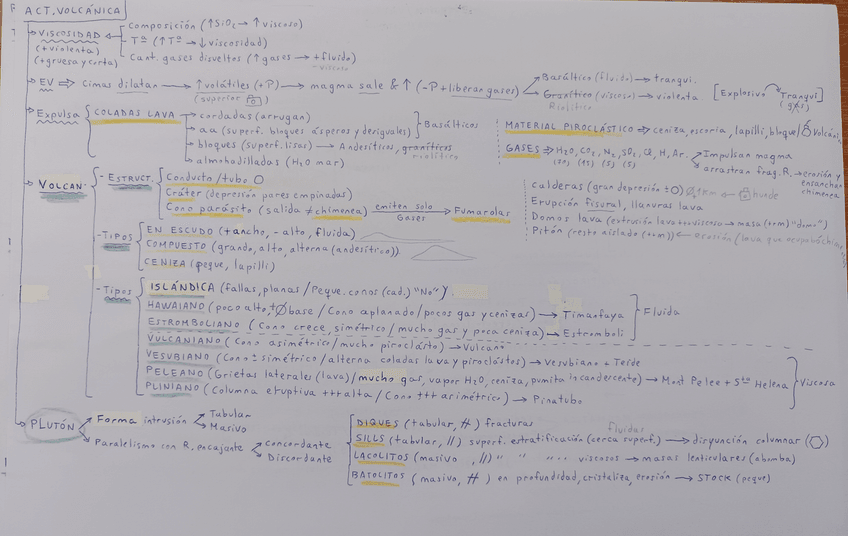 ACT. VOLCÁNICA
VISCOSIDAD
(+violenta)
(+gruesa y corta)
Composición (↑SiO₂ → ↑ viscoso)
Tª (↑Tª → ↓ viscosidad)
Cant. gases disueltos (↑ gases → + fluido)
- viscoso
EV ⇒ Cimas dilatan → ↑ volátiles (+P) → magma sale & ↑ (-P + liberan gases)
(superior)
Basáltico (fluido) → tranqui.
Granítico (viscoso) → violenta
Riolítico
[Explosivo Tranqui]
(gases)
Expulsa
COLADAS LAVA
cordadas (arrugan)
aa (superf. bloques ásperos y desiguales)
Basálticos
bloques (superf. lisas) → Andesíticos, graníticos
riolíticos
almohadilladas (H₂O mar)
MATERIAL PIROCLÁSTICO → ceniza, escoria, lapilli, bloque/
GASES → H₂O, CO₂, N₂, SO₂, Cl, H, Ar.
(70) (15) (5) (5)
Impulsan magma
arrastran frag. R. → erosión y
ensanchan
chimenea
VOLCAN
- ESTRUCT.
Conducto / tubo O
Cráter (depresión pares empinadas)
Cono parásito (salida ≠ chimenea) emiten solo Gases → Fumarolas
Calderas (gran depresión +O) Ø 1km ← hunde
Erupción fisural, llanuras lava
Domos lava (extrusión lava ++ viscosa → masa (++m) "domo")
Pitón (resto aislado (++m)) ← erosión (lava que ocupaba
- TIPOS
EN ESCUDO (+ancho, - alto, fluida)
COMPUESTO (grande, alto, alterna (andesítico))
CENIZA (peque, lapilli)
- TIPOS
ISLÁNDICA (fallas, planas / Peque. conos (cad.) "No")
HAWAIANO (poco alto, +Ø base / Cono aplanado / pocos gas y cenizas) → Timanfaya
ESTROMBOLIANO (Cono crece, simétrico / mucho gas y poca ceniza) → Estromboli
Fluida
VULCANIANO (Cono asimétrico / mucho piroclásto) → Vulcano
VESUBIANO (Cono ± simétrico / alterna coladas lava y piroclástos) → Vesubiano + Teide
PELEANO (Grietas laterales (lava) / mucho gas, vapor H₂O, ceniza, pumita incandescente) → Mont Pelee + Sta Helena
PLINIANO (Columna eruptiva +++ alta / Cono +++ asimétrico) → Pinatubo
Viscosa
PLUTÓN
Forma intrusión
Tabular
Masivo
Paralelismo con R. encajante
Concordante
Discordante
DIQUES (tabular, #) fracturas
fluidas
SILLS (tabular, //) superf. estratificación (cerca superf.) → disyunción columnar
LACOLITOS (masivo, //) " " " .. viscosos → masas lenticulares (abomba)
BATOLITOS (masivo, #) en profundidad, cristaliza, erosión → STOCK (peque)